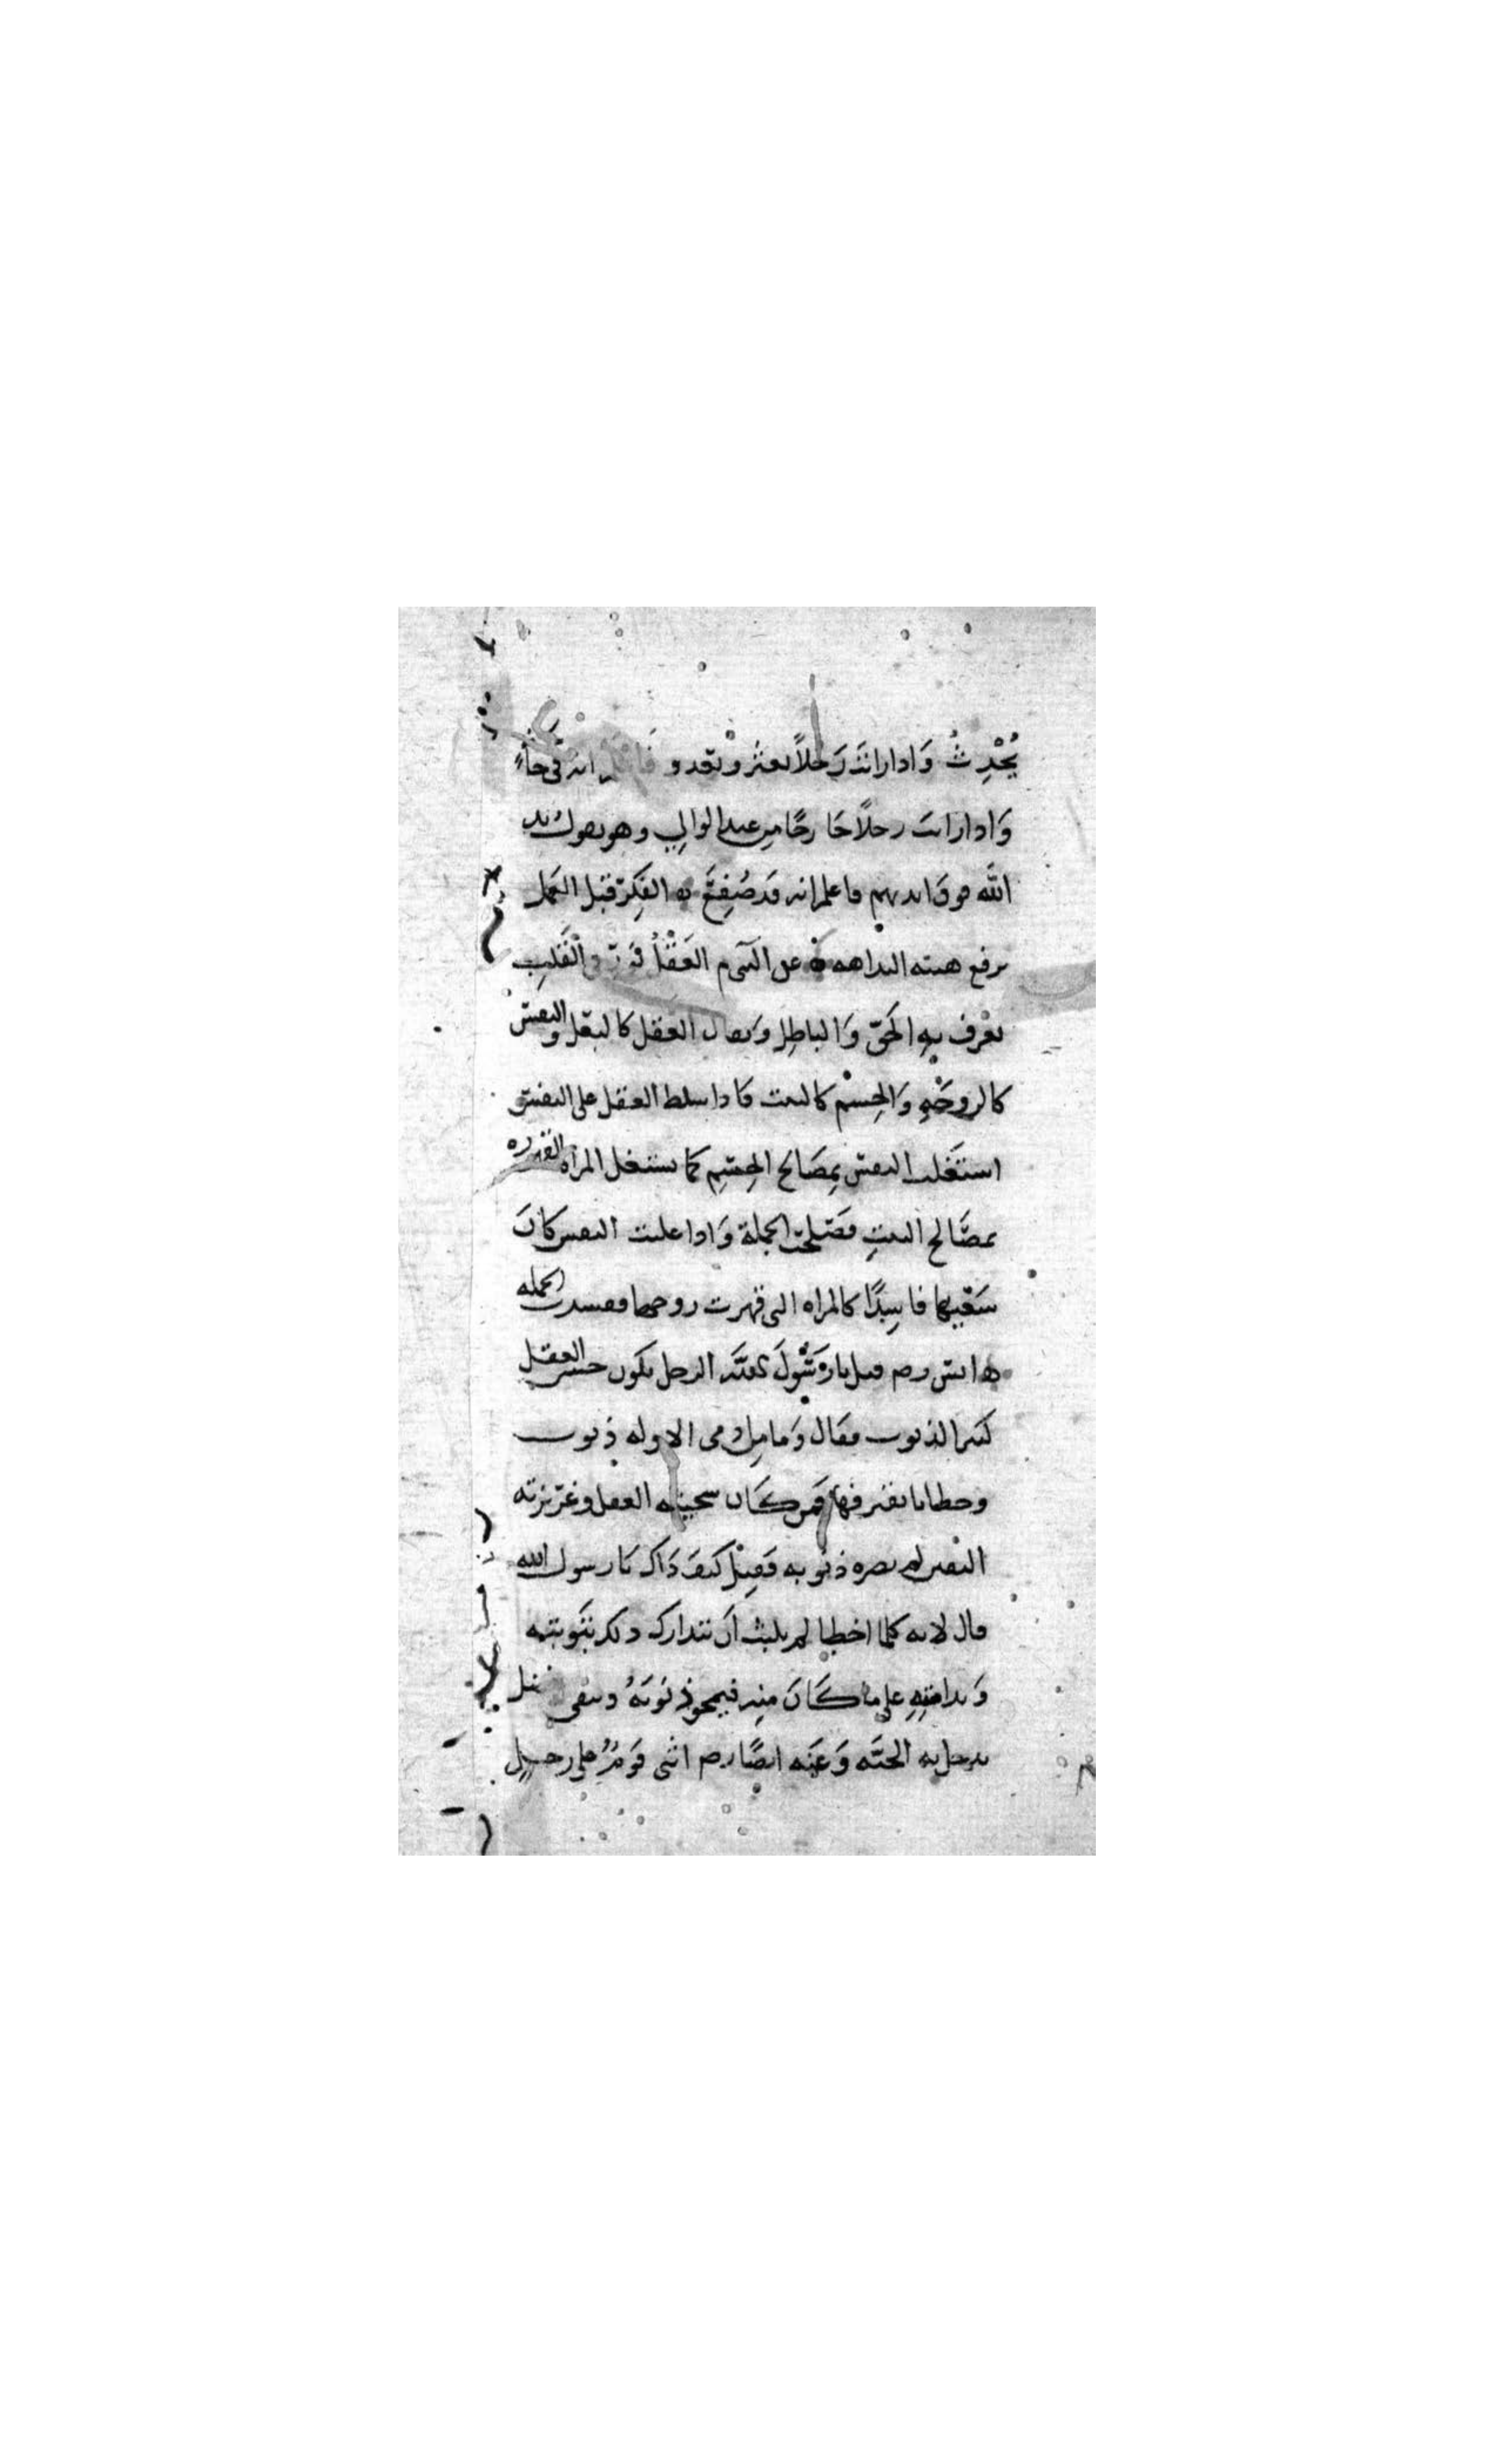 يُحْدِثُ وَاذا رايتَ رَجلاً يعثر ويعدو فاعلم انه في حاجة
وَاذا رايت رجلاً خَارجًا من عند الوالي وهو يقول يد
الله فوق ايديهم فاعلم انه قد صُفِعَ الفِكرة قبل العَمل
العَقْلُ في القَلبِ
يعْرف بِهِ الحَقّ وَالباطِل وَيقال العقل كالبعل والنفس
كالزوجَةِ وَالجِسْم كالبيت فاذا سلط العقل على النفس
اشتَغلت النفس بمِصَالح الجِسْم كما تشتغل المراه
بمصَالح البيتِ فصَلحت الجملة وَاذا غلبت النفس كانَ
سَعْيها فاسِدًا كالمراه التي قهرت زوجها ففسدت الجمله
انس رم قيل يا رَسُولَ الله الرجل يكون حسن العقل
كثير الذنوب فقال وَما مِن ادمى الا وله ذنوب
وخطايا يقترفها فمَن كَان سجيته العقل وغَريزته
اليقين لم تضره ذنوبه فقِيْل كيفَ ذَاك يَا رسول الله
قال لانه كلما اخطا لم يلبث اَن يتدارك ذلك بتَوبته
وَندامتِهِ على ما كَانَ مِنه فيمحو ذنوبَهُ ويبقى فضل
يدخل به الجنَّه وَعَنه ايضًا رم اثنى قَومٌ على رجل